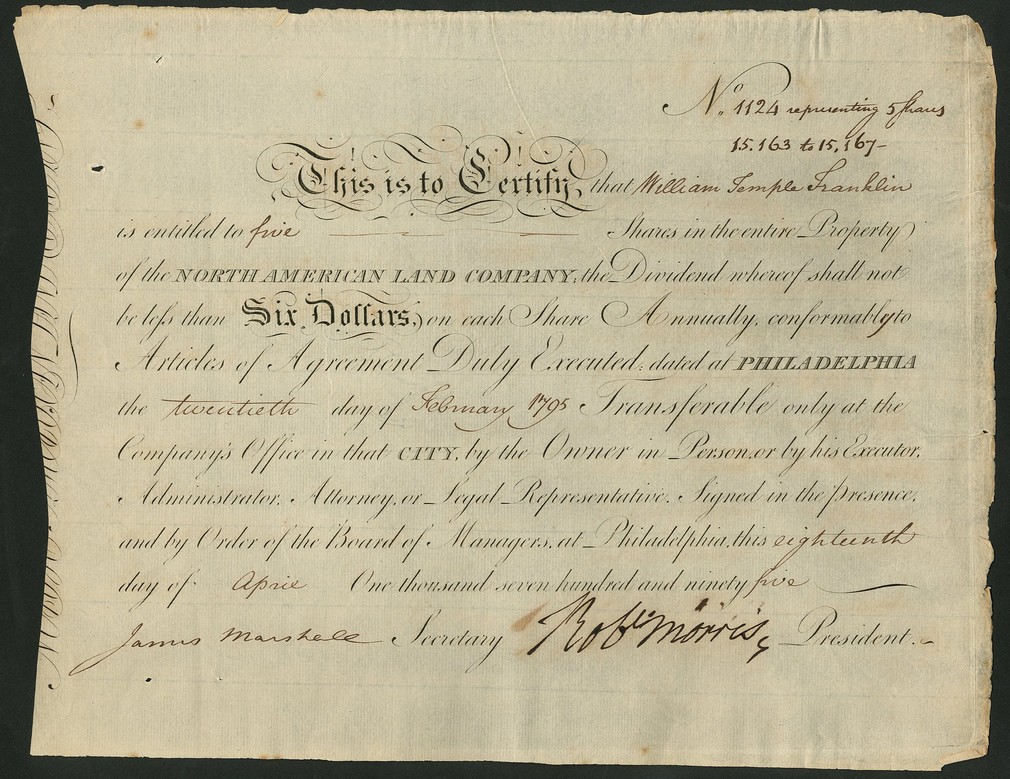 No. 1124 representing 5 Shares
15.163 to 15,167-
This is to Certify, that William Temple Franklin
is entitled to five Shares in the entire Property
of the NORTH AMERICAN LAND COMPANY, the Dividend whereof shall not
be less than Six Dollars, on each Share Annually, conformably to
Articles of Agreement Duly Executed; dated at PHILADELPHIA
the twentieth day of February 1795 Transferable only at the
Company's Office in that CITY, by the Owner in Person, or by his Executor,
Administrator, Attorney, or Legal Representative. Signed in the presence,
and by Order of the Board of Managers, at Philadelphia, this eighteenth
day of April One thousand seven hundred and ninety five
James Marshall Secretary Robt. Morris, President.